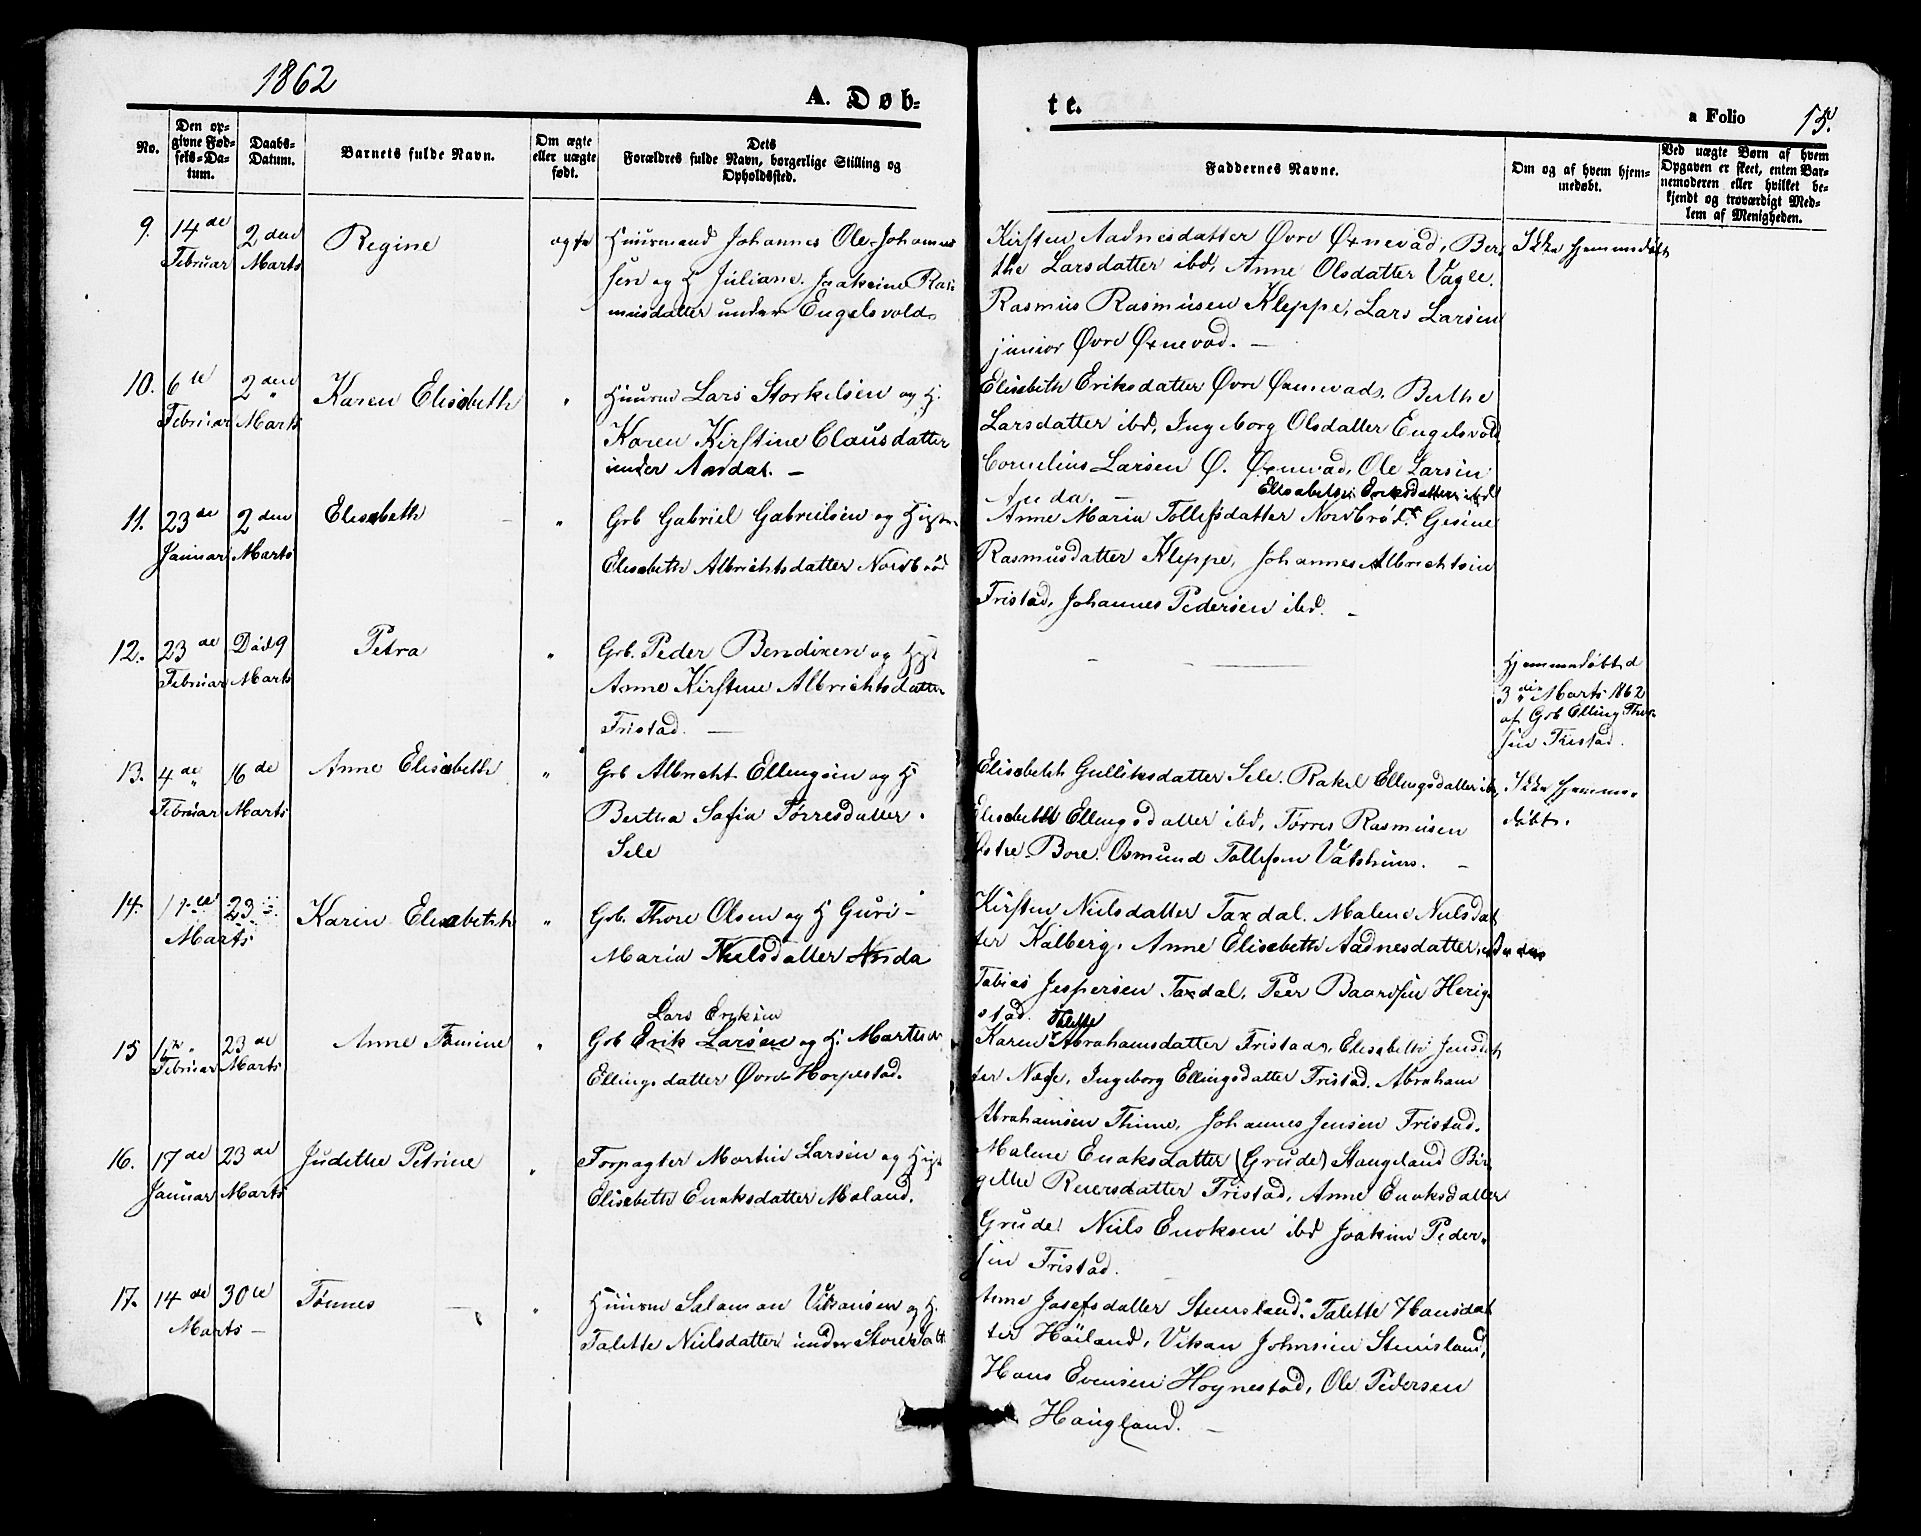 1862
A. Døb-
te.
a Folio 15.
No.
Den op-
givne Fød-
sels-Da-
tum.
Daabs-
Datum.
Barnets fulde Navn.
Om ægte
eller uægte
født.
Dets
Forældres fulde Navn, borgerlige Stilling og
Opholdssted.
Faddernes Navne.
Om og af hvem hjem-
medøbt.
Ved uægte Børn af hvem
Opgaven er skeet, enten Bar-
nemoderen eller hvilket be-
kjendt og troværdigt Med-
lem af Menigheden.
9. 14de Februar
2den Marts
Regine
ægte
Huusmand Johannes Ole Johannes
sen og H Juliane Joakime Ras
musdatter under Engelsvold
Kirsten Aadnesdatter Øvre Øxnevad, Ber
the Larsdatter ibd, Anne Olsdatter Vagle.
Rasmus Rasmusen Kleppe, Lars Larsen
junior Øvre Øxnevad. —
Ikke hjemmedøbt
10. 6te Februar
2den Marts
Karen Elisabeth
"
Huusm Lars Storkelsen og H.
Karen Kirstine Clausdatter
under Aardal. —
Elisabeth Eriksdatter Øvre Øxnevad, Berthe
Larsdatter ibd, Ingeborg Olsdatter Engelsvold
Cornelius Larsen Ø. Øxnevad, Ole Larsen
Anda. —
11. 23de Januar
2den Marts
Elisabeth —
"
Grb Gabriel Gabrielsen og Hust
Elisabeth Albrichtsdatter Nordbrød
Elisabeth Eriksdatter ibd
Anne Maria Tollefsdatter Nordbrød, Gesine
Rasmusdatter Kleppe, Johannes Albrichtsen
Fristad, Johannes Pedersen ibd. —
12. 23de Februar
Død 9 Marts
Petra
"
Grb. Peder Bendixen og Hust
Anne Kirstine Albrichtsdatter
Fristad. —
Hjemmedøbt d
3die Marts 1862
af Grb Elling Thor
sen Fristad.
13. 4de Februar
16de Marts
Anne Elisabeth
"
Grb Albrecht Ellingsen og H
Bertha Safia Tørresdatter.
Sele
Elisabeth Gulliksdatter Sele. Rakel Ellingsdatter ibd
Elisabeth Ellingsdatter ibd, Tørres Rasmusen
Østre Bore. Osmund Tollefsen Vatshuus. —
Ikke hjemme-
døbt.
14. 23 Marts
Karen Elisabeth
"
Grb. Thore Olsen og H Guri-
Maria Nielsdatter Anda
Kirsten Nielsdatter Taxdal. Malene Nielsdat
ter Kalberg, Anne Elisabeth Aadnesdatter
Tobias Jespersen Taxdal, Peer Baardsen Herig
stad.
15 Februar
23de Marts
Anne Tomine
"
Lars Eriksen
Grb Erik Larsen og H. Martha
Ellingsdatter Øvre Horpestad.
Talette
Karen Abrahamsdatter Fristad, Elisabeth Jensdat
ter Næse, Ingeborg Ellingsdatter Fristad. Abraham
Abrahamsen Thime, Johannes Jensen Fristad.
16. 17de Januar
23de Marts
Judithe Petrine
"
Forpagter Martin Larsen og Hust
Elisabeth Enoksdatter Maland.
Malene Enoksdatter (Grude) Stangeland Bir
githe Reiersdatter Fristad, Anne Enoksdatter
Grude Niels Enoksen ibd Joakim Peder-
sen Fristad.
17. 14de Marts —
30te
Tønnes —
"
Huusm Salamon Vikansen og H.
Talette Nielsdatter under
Anne Josefsdatter Steinsland. Talette Hansdat
ter Høiland, Vikan Johnsen Steinsland,
Hans Evensen Hognestad, Ole Pedersen
Haugland. —